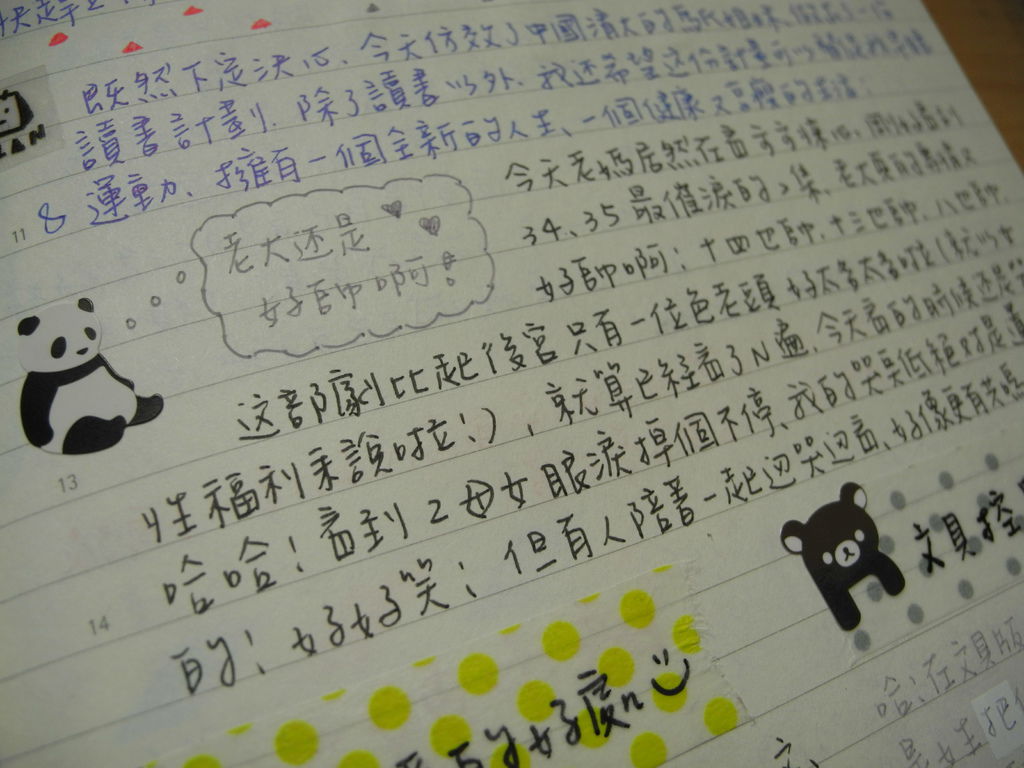 既然下定決心、今天仿效了中國清大的馬氏姐妹、做了一份
讀書計劃. 除了讀書以外. 我还希望这份計畫可以
8 運動、擁有一個全新的人生、一個健康又
11
今天老媽居然在看步步驚心、剛好看到
34、35 最催淚的2集、老大真的
好帥啊; 十四也帥. 十三也帥. 八也帥.
老大还是
好帥啊!
这部陽劇比起後宮只有一位色老頭 好太多太多啦(就以女
13
性福利來說啦!), 就算已經看了N遍、今天看的時候还是
哈哈! 看到2母女眼淚掉個不停、我的哭點低絕對是遺
14
的! 好好笑; 但有人陪著一起边哭边看、好像更有共鳴
文具控
的好廣
哈! 在文具版